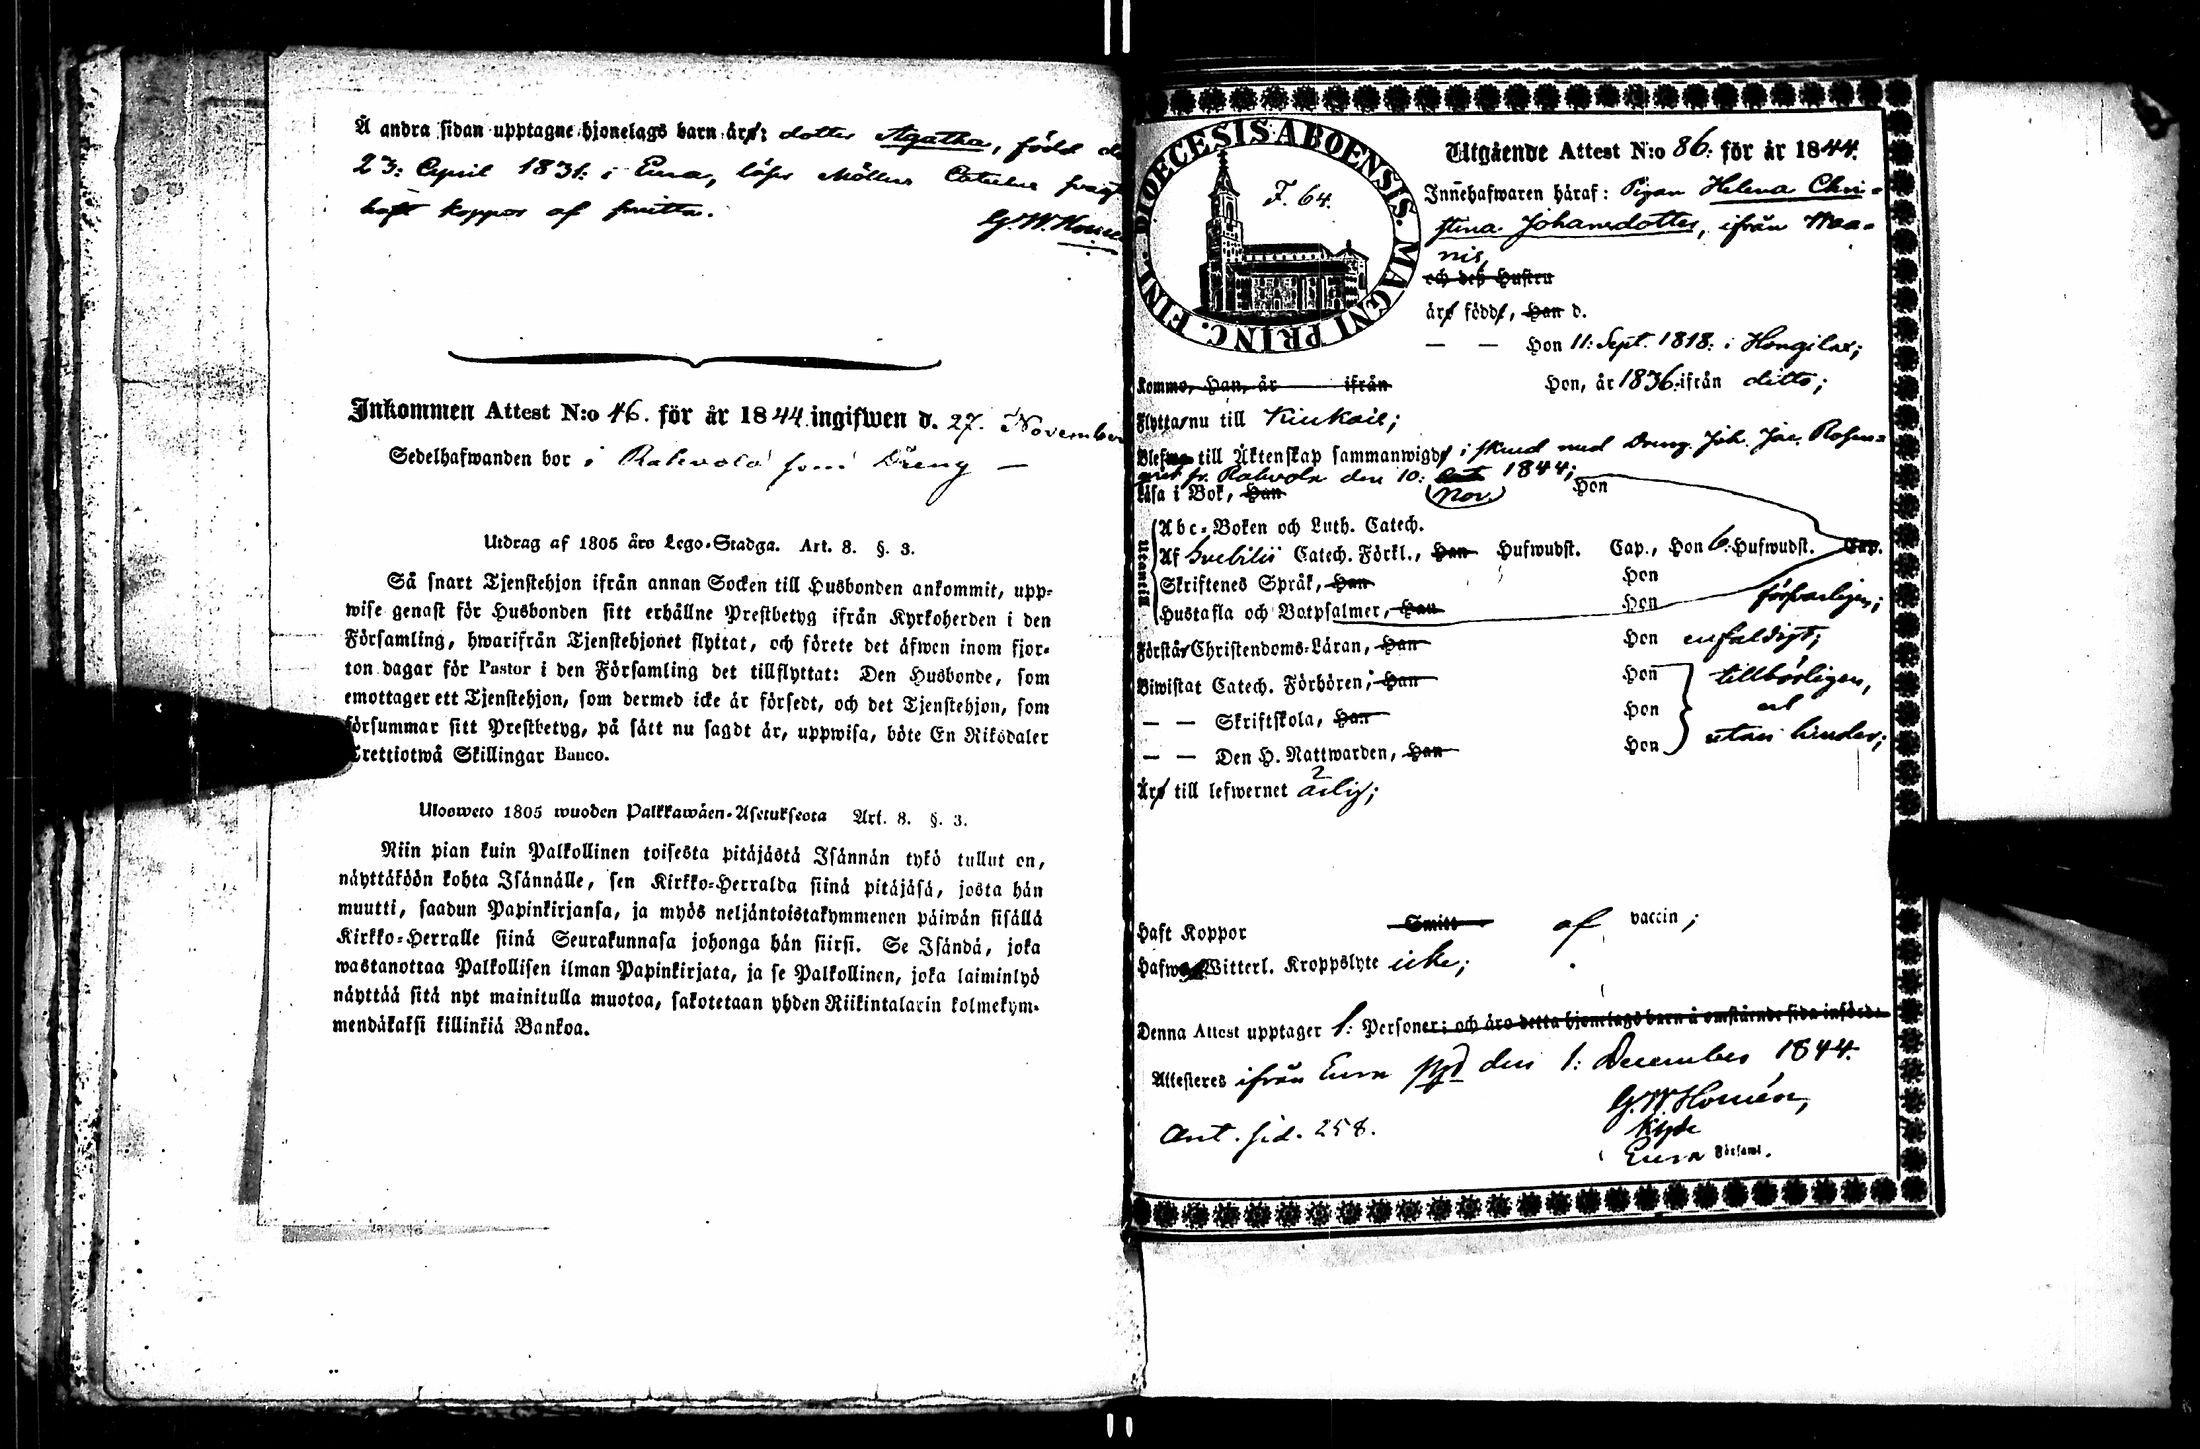 Å andra sidan upptagne hjonelags barn är: dotter Agatha, född d
23: April 1831: i Eura, läser Möllers Cateches
haft koppor af smitta.
G. W. Homén
Inkommen Attest N:o 46. för år 1844 ingifwen d. 27. November
Sedelhafwanden bor i Rahvola som Dreng —
Utdrag af 1805 åro Lego-Stadga. Art. 8. §. 3.
Så snart Tjenstehjon ifrån annan Socken till Husbonden ankommit, upp-
wise genast för Husbonden sitt erhållne Prestbetyg ifrån Kyrkoherden i den
Församling, hwarifrån Tjenstehjonet flyttat, och förete det äfwen inom fjor-
ton dagar för Pastor i den Församling det tillflyttat: Den Husbonde, som
emottager ett Tjenstehjon, som dermed icke är försedt, och det Tjenstehjon, som
försummar sitt Prestbetyg, på sätt nu sagdt är, uppwisa, böte En Riksdaler
Trettiotwå Skillingar Banco.
Ulosweto 1805 wuoden Palkkawäen-Asetuksesta Art. 8. §. 3.
Niin pian kuin Palkollinen toisesta pitäjästä Isännän tykö tullut on,
näyttäköön kohta Isännälle, sen Kirkko-Herralda siinä pitäjäsä, josta hän
muutti, saadun Papinkirjansa, ja myös neljäntoistakymmenen päiwän sisällä
Kirkko-Herralle siinä Seurakunnasa johonga hän siirsi. Se Isändä, joka
wastanottaa Palkollisen ilman Papinkirjata, ja se Palkollinen, joka laiminlyö
näyttää sitä nyt mainitulla muotoa, sakotetaan yhden Riikintalarin kolmekym-
mendäkaksi killinkiä Bankoa.
DIOECESIS ABOENSIS. MAGNI PRINC. FINL.
F. 64.
Utgående Attest N:o 86: för år 1844.
Innehafwaren häraf: Pigan Helena Chri-
stina Johansdotter, ifrån Naa-
nis,
och deß Hustru
äro födde, Han d.
— — Hon 11: Sept. 1818: i Hongilax;
Komme, Han, år ifrån Hon, år 1836: ifrån ditto;
Flytta nu till Kiukais;
Blefwo till Äktenskap sammanwigde i skrud med Dreng. Joh. Jac. Rosen-
qvist fr. Rahvola den 10: 1844;
(Nov.)
Läsa i Bok, Han Hon
Utoneill
Abc-Boken och Luth. Catech.
Af Svebilii Catech. Förkl., Han Hufwudst. Cap., Hon 6: Hufwudst. Cap.
Skriftenes Språk, Han Hon
Hustafla och Botpsalmer, Han Hon försvarligen;
Förstår Christendoms-Läran, Han Hon enfaldigt;
Biwistat Catech. Förhören, Han Hon tillbörligen,
— — Skriftskola, Han Hon och
— — Den H. Nattwarden, Han Hon utan hinder;
Äro till lefwernet ärlig;
2
Haft Koppor Smitt af vaccin;
Hafwa Witterl. Kroppslyte icke;
Denna Attest upptager 1: Personer; och äro detta hjonelags barn å omstående sida införde
Attesteres ifrån Eura den 1: December 1844.
G. W. Homén,
Kyhde
Eura Församl.
Ant. sid. 258.